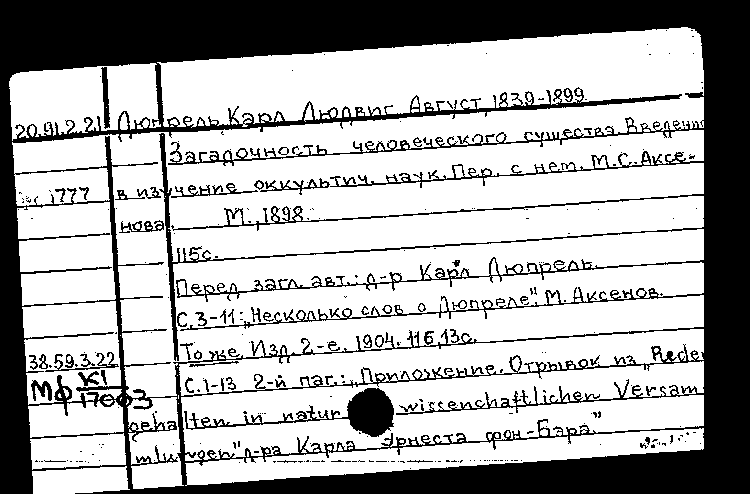 20.91.2.21 Дюпрель, Карл Людвиг Август, 1839-1899
Загадочность человеческого существа. Введение
1777 в изучение оккультич. наук. Пер. с нем. М.С. Аксе-
нова. М., 1898.
115с.
Перед загл. авт.: д-р Карл Дюпрель.
С.3-11: „Несколько слов о Дюпреле". М. Аксенов.
38.59.3.22 То же. Изд. 2-е. 1904. 116,13с.
Мф К1/17603 С.1-13 2-й паг.: „Приложение. Отрывок из „Reden
gehalten in natur wissenschaftlichen Versam
mlungen" д-ра Карла Эрнеста фон-Бара."